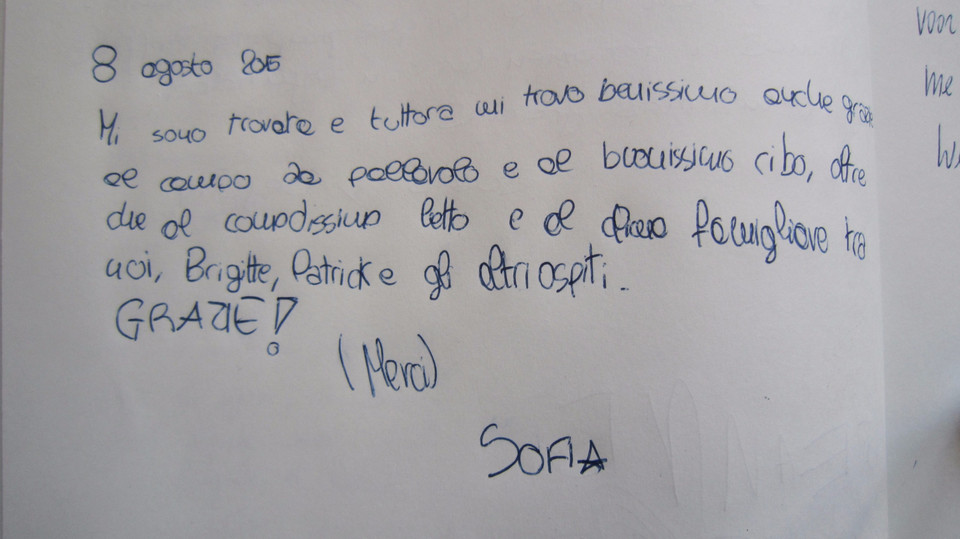 8 agosto 2015
Mi sono trovata e tuttora mi trovo benissimo anche grazie
al campo da pallavolo e al buonissimo cibo, oltre
che al comodissimo letto e al clima famigliare tra
noi, Brigitte, Patrick e gli altri ospiti.
GRAZIE!
(Merci)
SOFIA
voor
me